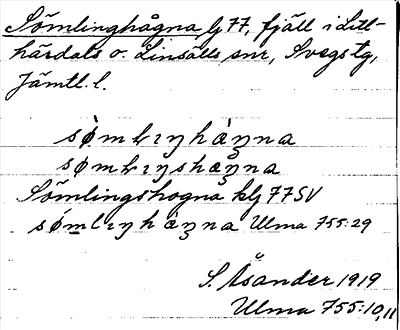 Sömlinghågna lj 77, fjäll i Litl-
härdals o. Linsälls snr, Svegs tg,
Jämtl. l.
sòmlıŋhàŋna
sòmlıŋshàŋna
Sömlingshogna klj 77 SV
sómlıŋhàŋna Ulma 755:29
S. Åsander 1919
Ulma 755:10,11